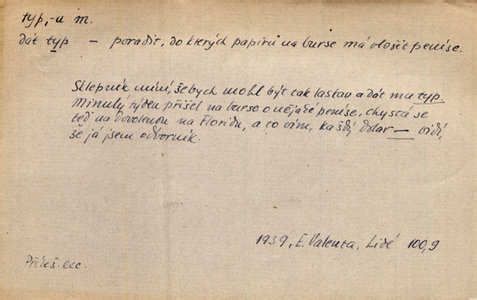 typ, -u m.
dát typ — poradit, do kterých papírů na burse má vložit peníze.
Sklepník míní, že bych mohl být tak laskav a dát mu typ.
Minulý týden přišel na burse o nějaké peníze, chystá se
teď na dovolenou na Floridu, a to vám, každý dolar — vidí,
že já jsem odborník.
1939, E. Valenta, Lidé 100,9
Příleš. exc.